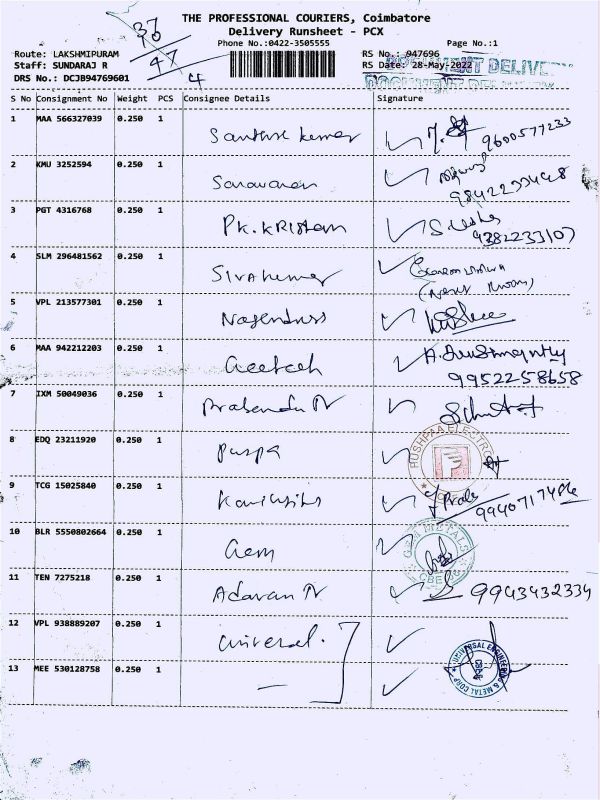 THE PROFESSIONAL COURIERS, Coimbatore
Delivery Runsheet - PCX
Phone No.:0422-3505555 Page No.:1
Route: LAKSHMIPURAM RS No.: 947696
Staff: SUNDARAJ R RS Date: 28-May-2022
DRS No.: DCJB94769601
37
10
47
4
S No Consignment No Weight PCS Consignee Details Signature
1 MAA 566327039 0.250 1 Santhosh kumar 9600577233
2 KMU 3252594 0.250 1 Saravanan 9842233448
3 PGT 4316768 0.250 1 PK.KRISHAN 9382233107
4 SLM 296481562 0.250 1 Sivakumar
5 VPL 213577301 0.250 1 Nagendrss
6 MAA 942212203 0.250 1 Geetech 9952258658
7 IXM 50049036 0.250 1
8 EDQ 23211920 0.250 1 Puspa PUSHPAA ELECTRO
9 TCG 15025840 0.250 1
10 BLR 5550802664 0.250 1 Gem GEM METALS CBE
11 TEN 7275218 0.250 1 9943432334
12 VPL 938889207 0.250 1 universal.
13 MEE 530128758 0.250 1 — UNIVERSAL ENGINEERING & METAL CORP